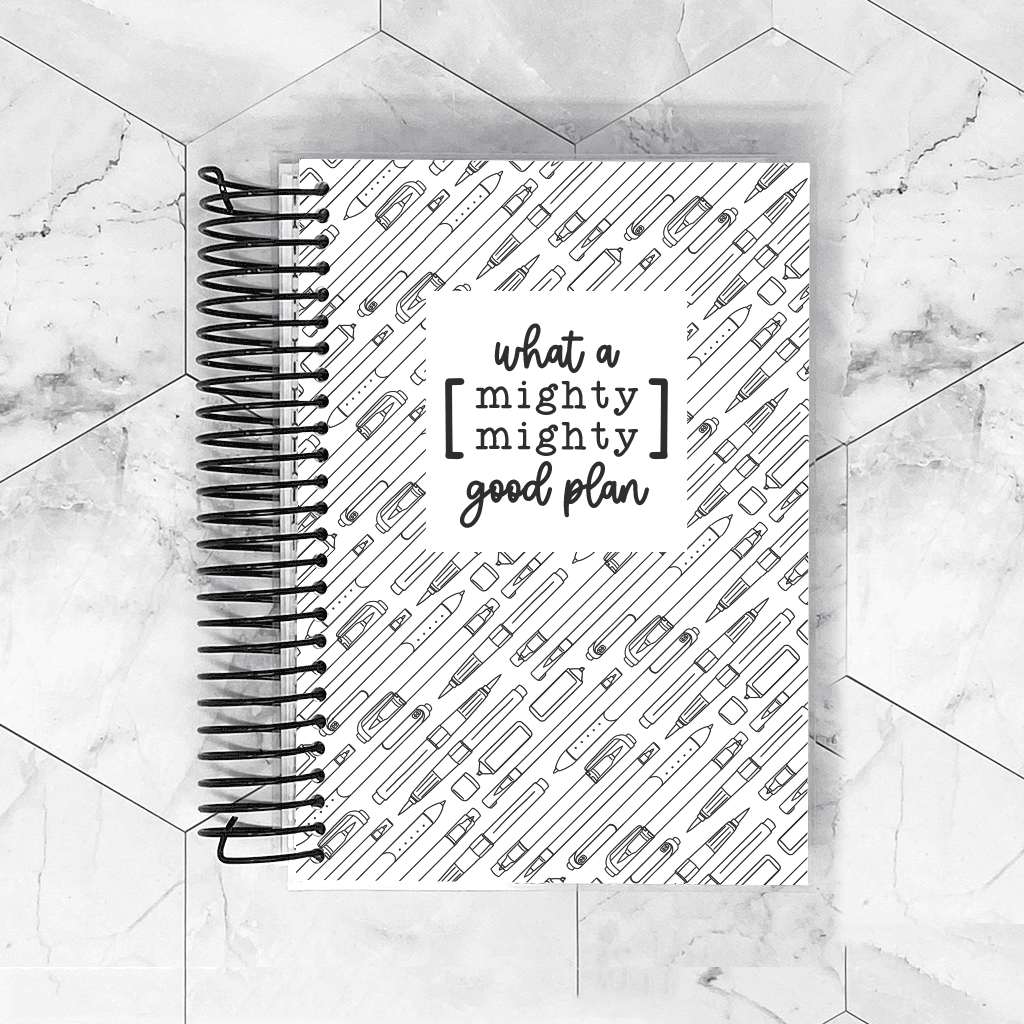 what a
[mighty
mighty]
good plan